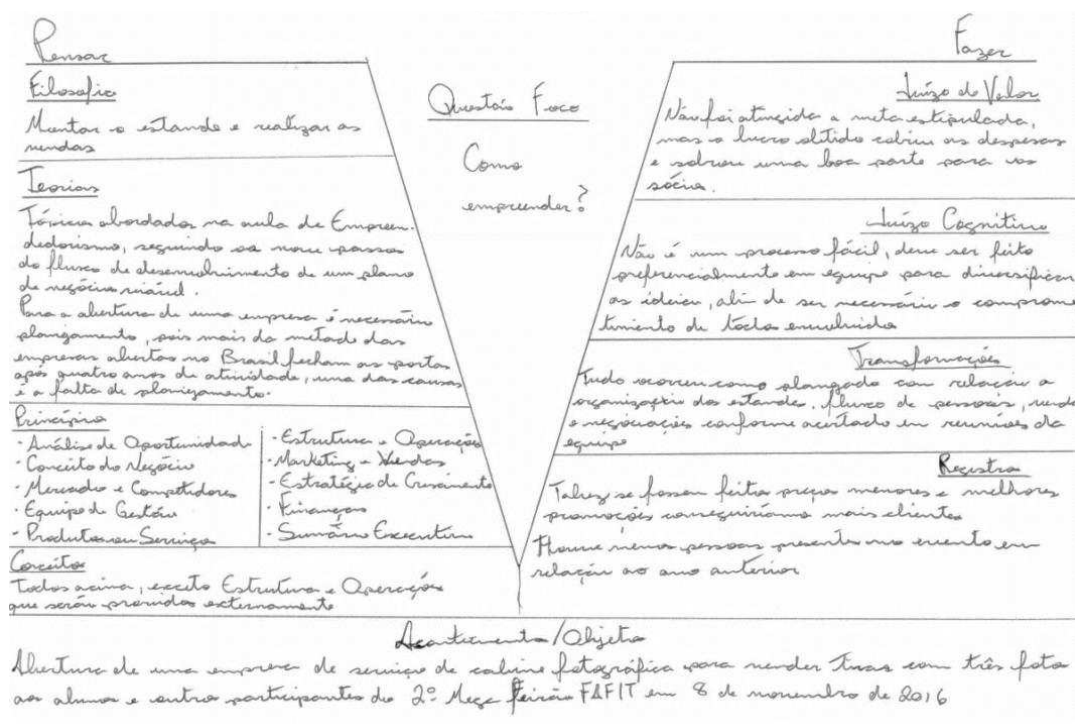 Pensar
Filosofia
Montar o estande e realizar as
vendas
Teorias
Tópicos abordados na aula de Empreen-
dedorismo, seguindo os nove passos
do fluxo de desenvolvimento de um plano
de negócios viável.
Para a abertura de uma empresa é necessário
planejamento, pois mais da metade das
empresas abertas no Brasil fecham as portas
após quatro anos de atividade, uma das causas
é a falta de planejamento.
Princípios
· Análise de Oportunidade
· Conceito do Negócio
· Mercado e Competidores
· Equipe de Gestão
· Produtos ou Serviços
· Estrutura e Operações
· Marketing e Vendas
· Estratégia de Crescimento
· Finanças
· Sumário Executivo
Conceitos
Todos acima, exceto Estrutura e Operações
que serão providos externamente
Questão Foco
Como
empreender?
Fazer
Juízo de Valor
Não foi atingida a meta estipulada,
mas o lucro obtido cobriu as despesas
e sobrou uma boa parte para os
sócios.
Juízo Cognitivo
Não é um processo fácil, deve ser feito
preferencialmente em equipe para diversificar
as ideias, além de ser necessário o comprome
timento de todos envolvidos
Transformações
Tudo ocorreu como planejado com relação a
organização dos estandes, fluxo de pessoas, venda
e negociações conforme acertado em reuniões da
equipe
Registros
Talvez se fossem feitos preços menores e melhores
promoções conseguiríamos mais clientes
Houve menos pessoas presentes no evento em
relação ao ano anterior
Acontecimento/Objeto
Abertura de uma empresa de serviço de cabine fotográfica para vender tiras com três fotos
aos alunos e outros participantes do 2º Mega Feirão FAFIT em 8 de novembro de 2016